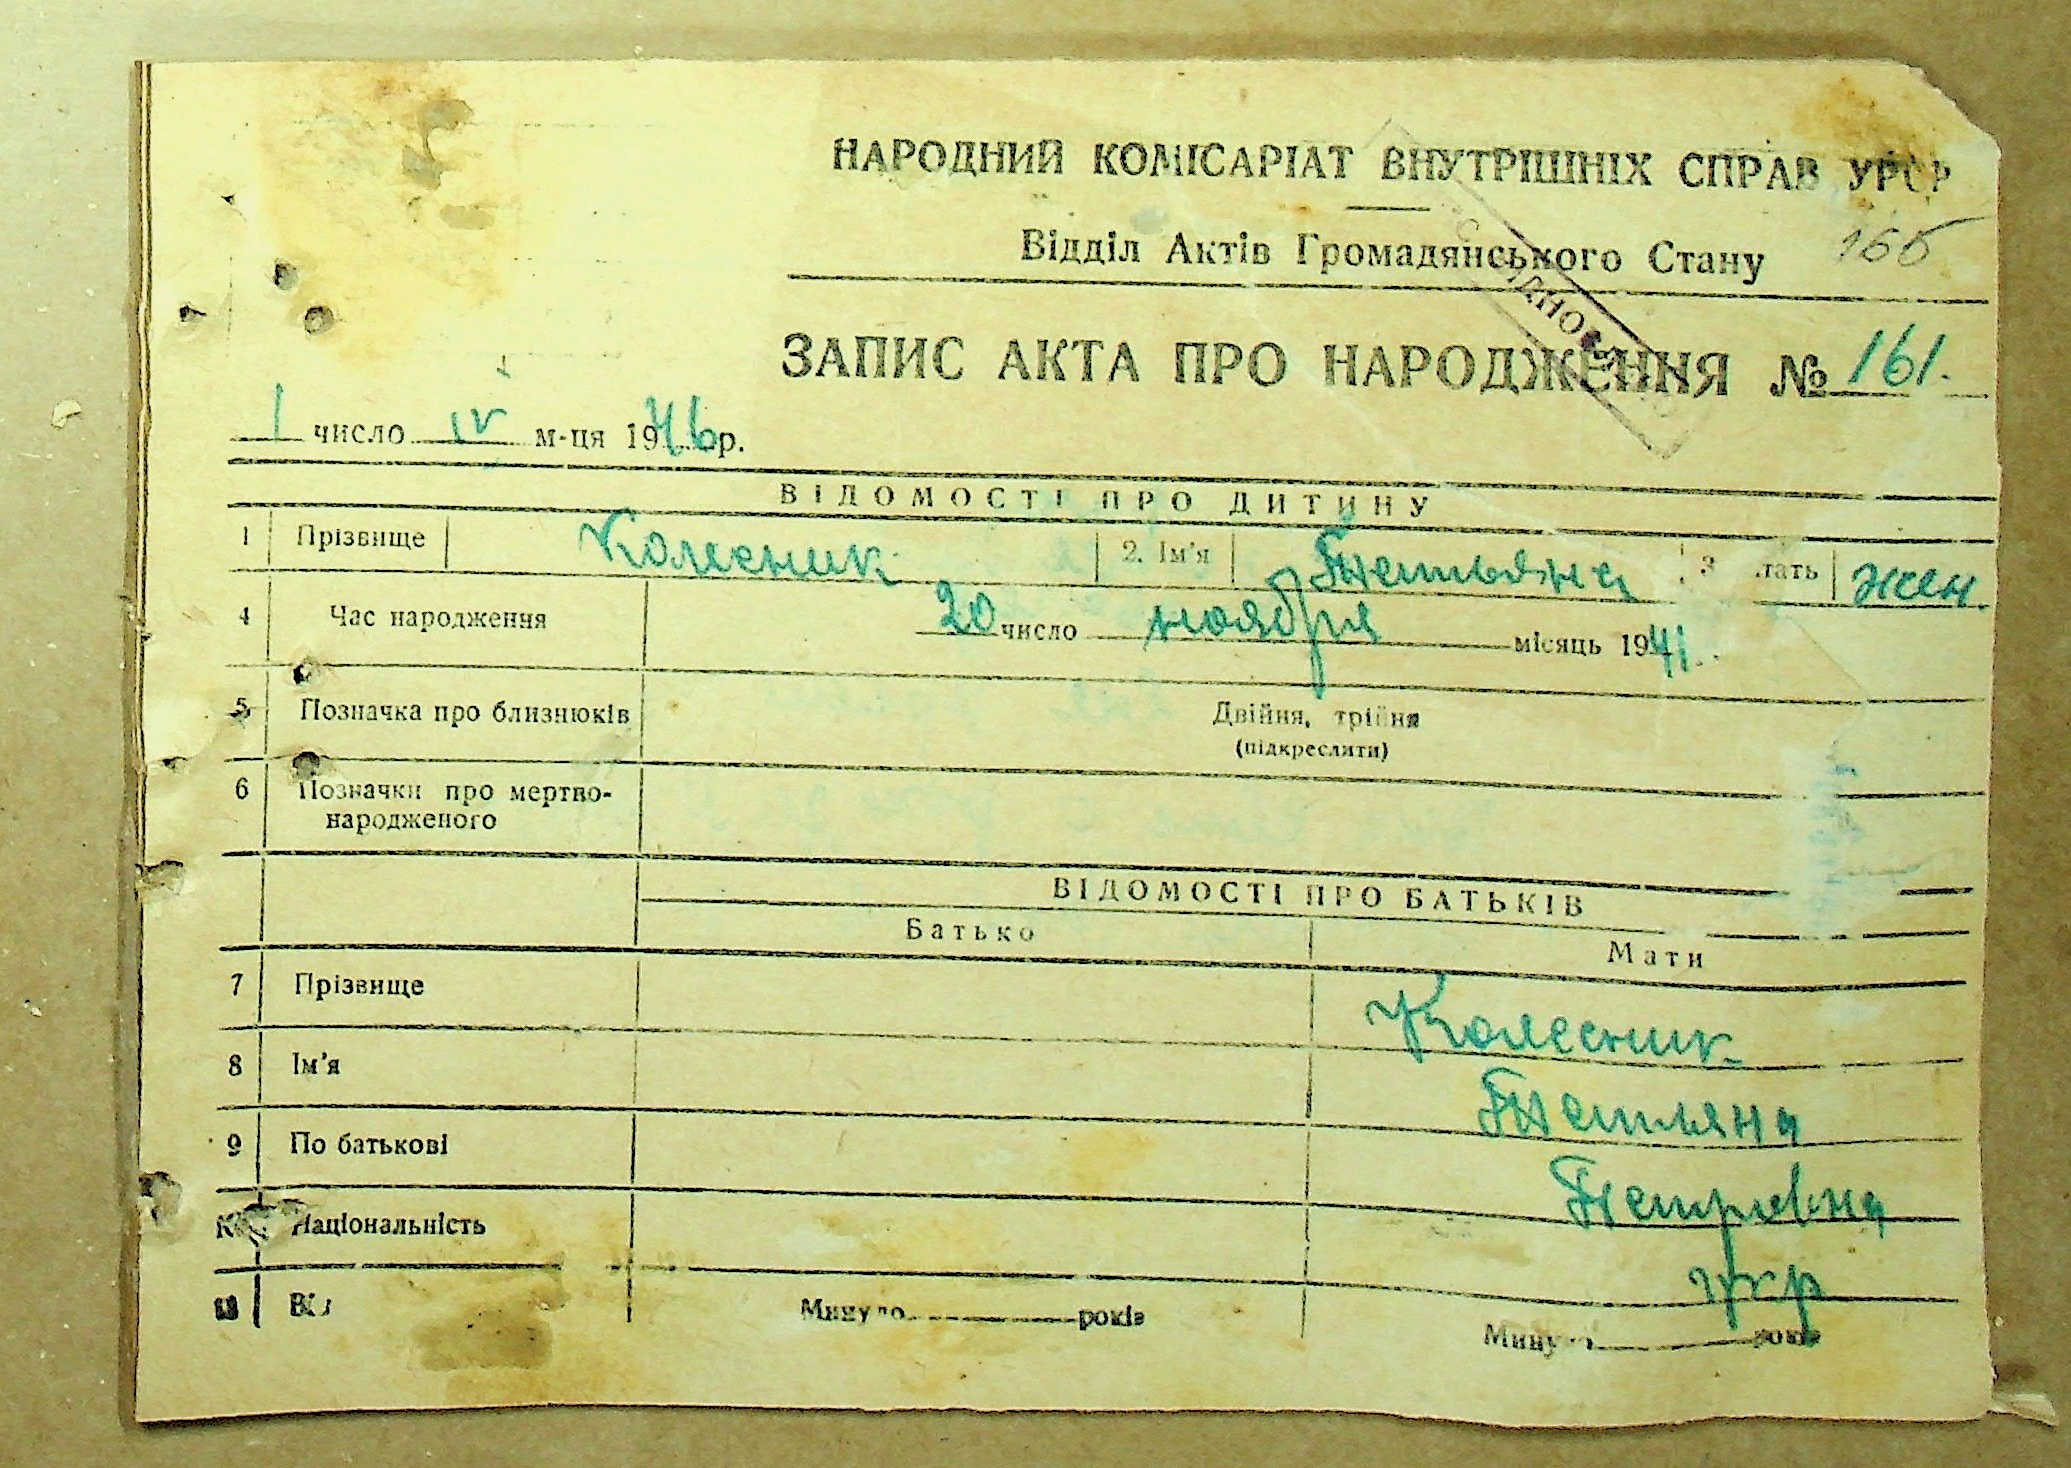 НАРОДНИЙ КОМІСАРІАТ ВНУТРІШНІХ СПРАВ УРСР
Відділ Актів Громадянського Стану 166
ЗАПИС АКТА ПРО НАРОДЖЕННЯ № 161.
1 число IV м-ця 1946 р.
ВІДОМОСТІ ПРО ДИТИНУ
1 Прізвище Колесник 2. Ім'я Тетьяна 3 стать жен.
4 Час народження 20 число ноября місяць 1941
5 Позначка про близнюків Двійня, трійня
(підкреслити)
6 Позначки про мертво-
народженого
ВІДОМОСТІ ПРО БАТЬКІВ
Батько Мати
7 Прізвище Колесник
8 Ім'я Тетьяна
9 По батькові Петровна
10 Національність укр
11 Вік Минуло років Минуло років